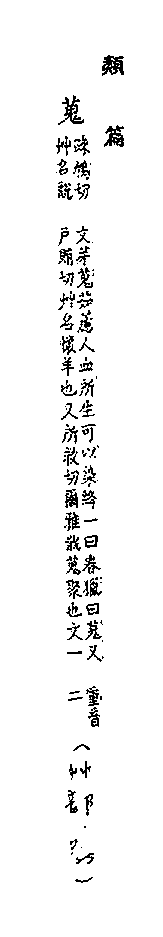 類篇
蒐
疎鳩切
艸名說
文茅蒐茹藘人血所生可以染絳一曰春獵曰蒐又
戶賄切艸名懷羊也又所救切爾雅蒐聚也文一
重音
二
(艸部・)